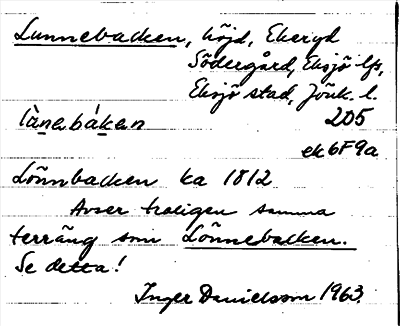 Lunnebacken, höjd, Ekeryd
Södergård, Eksjö lfs,
Eksjö stad, Jönk. l.
lànabákan 205
ek 6F9a
Lönnbacken ka 1812
Avser troligen samma
terräng som Lönnebacken.
Se detta!
Inger Danielsson 1963.